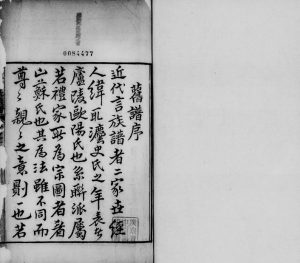 0084477
舊譜序
近代言族譜者二家世經
人緯取灋史氏之年表者
廬陵歐陽氏也系聯派屬
若禮家所為宗圖者眉
山蘇氏也其為法雖不同而
尊尊親親之意則一也若